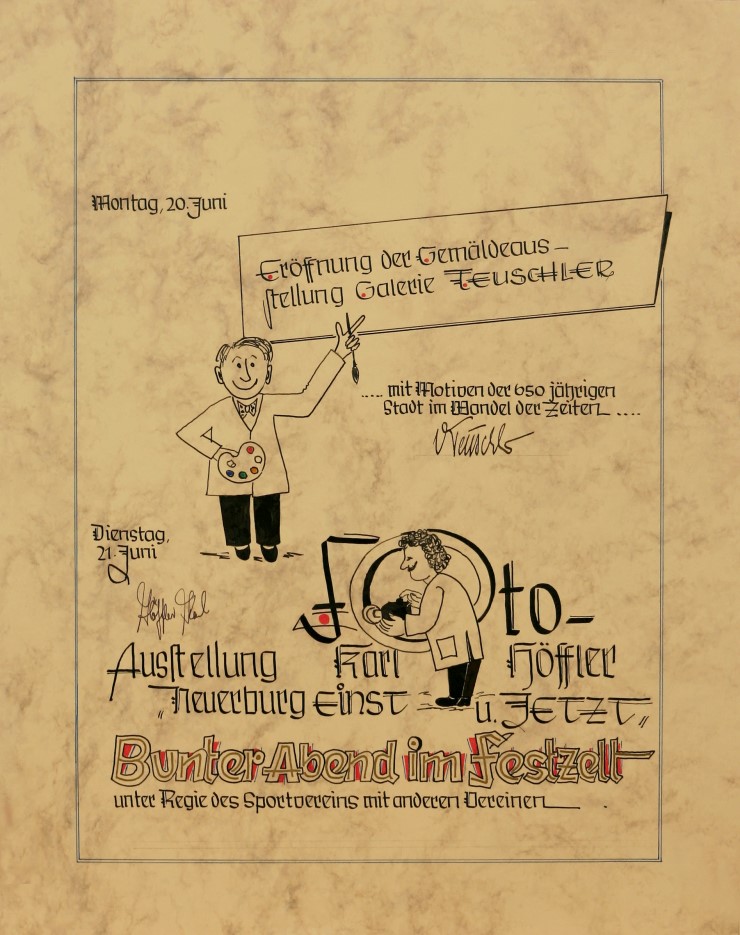 Montag, 20. Juni
Eröffnung der Gemäldeaus-
stellung Galerie TEUSCHLER
.... mit Motiven der 650 jährigen
Stadt im Wandel der Zeiten ....
Dienstag,
21. Juni
FOto-
Ausstellung Karl Höffler
"Neuerburg EINST u. JETZT"
Bunter Abend im Festzelt
unter Regie des Sportvereins mit anderen Vereinen .